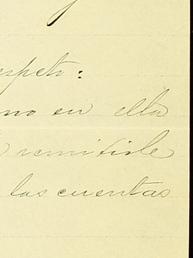 speto:
no en ella
remitirle
las cuentas